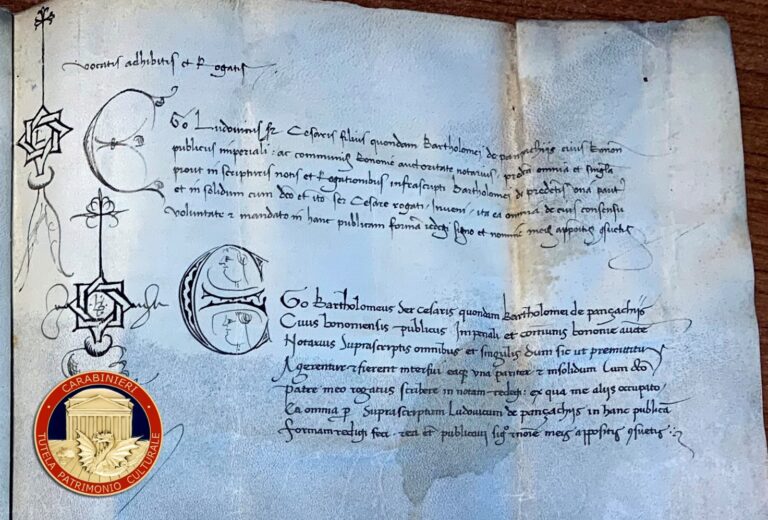 vocatis adhibitis et Rogatis
Ego Ludovicus ser Cesaris filius quondam Bartholomei de panzachijs civis bonon
publicus imperiali: ac communis bononie auctoritate notarius, omnia et singla
prout in scripturis notis et Rogationibus infrascripti Bartholomei de predictis una
et in solidum cum dco et ser Cesare rogati, Inveni, ita ea omnia de eius consensu
voluntate et mandato in hanc publicam formam redegi signo et nomine meis appositis
Ego Bartholomeus ser Cesaris quondam Bartholomei de panzachijs
Civis bononiensis publicus Imperiali et comunis bononie aucte
Notarius Suprascriptis omnibus et singulis dum sic ut premittitur
Agerentur et fierent interfui eaque una pariter et insolidum Cum dco
patre meo rogatus scribere in notam redegi: ex qua me alijs occupato,
Ea omnia p Suprascriptum Ludovicum de panzachijs in hanc publicã
formam redigi feci meis appositis
CARABINIERI
TUTELA PATRIMONIO CULTURALE